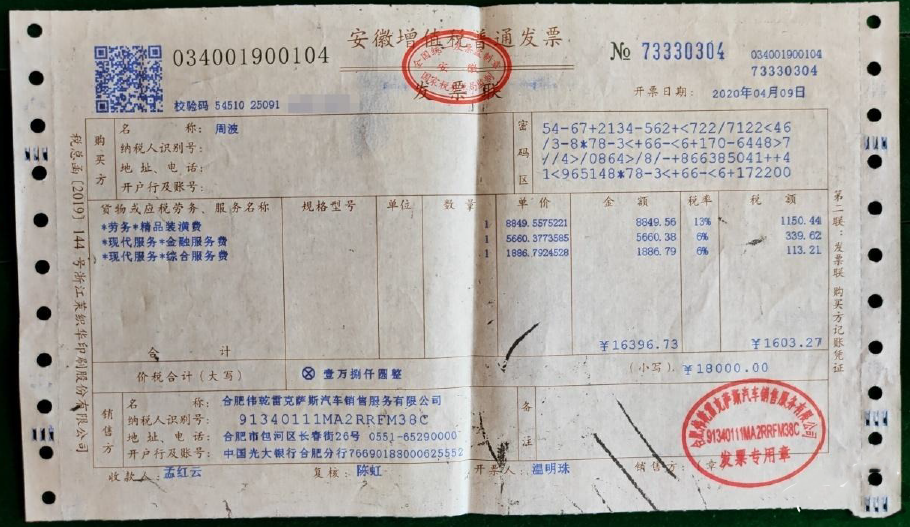 034001900104
安徽增值税普通发票
发票联
№ 73330304
034001900104
73330304
校验码 54510 25091
开票日期: 2020年04月09日
购买方
名称: 周波
纳税人识别号:
地址、电话:
开户行及账号:
密码区
54-67+2134-562+<722/7122<46
/3-8*78-3<+66-<6+170-6448>7
//4>/0864>/8/-+866385041++4
1<965148*78-3<+66-<6+172200
货物或应税劳务、服务名称 规格型号 单位 数量 单价 金额 税率 税额
*劳务*精品装潢费 1 8849.5575221 8849.56 13% 1150.44
*现代服务*金融服务费 1 5660.3773585 5660.38 6% 339.62
*现代服务*综合服务费 1 1886.7924528 1886.79 6% 113.21
合计 ¥16396.73 ¥1603.27
价税合计(大写) ⊗ 壹万捌仟圆整 (小写) ¥18000.00
销售方
名称: 合肥伟乾雷克萨斯汽车销售服务有限公司
纳税人识别号: 91340111MA2RRFM38C
地址、电话: 合肥市包河区长春街26号 0551-65290000
开户行及账号: 中国光大银行合肥分行76690188000625552
备注
收款人: 孟红云 复核: 陈虹 开票人: 温明珠 销售方: (章)
税总函〔2019〕144号浙江莱织华印刷股份有限公司
第二联:发票联 购买方记账凭证
合肥伟乾雷克萨斯汽车销售服务有限公司
91340111MA2RRFM38C
发票专用章